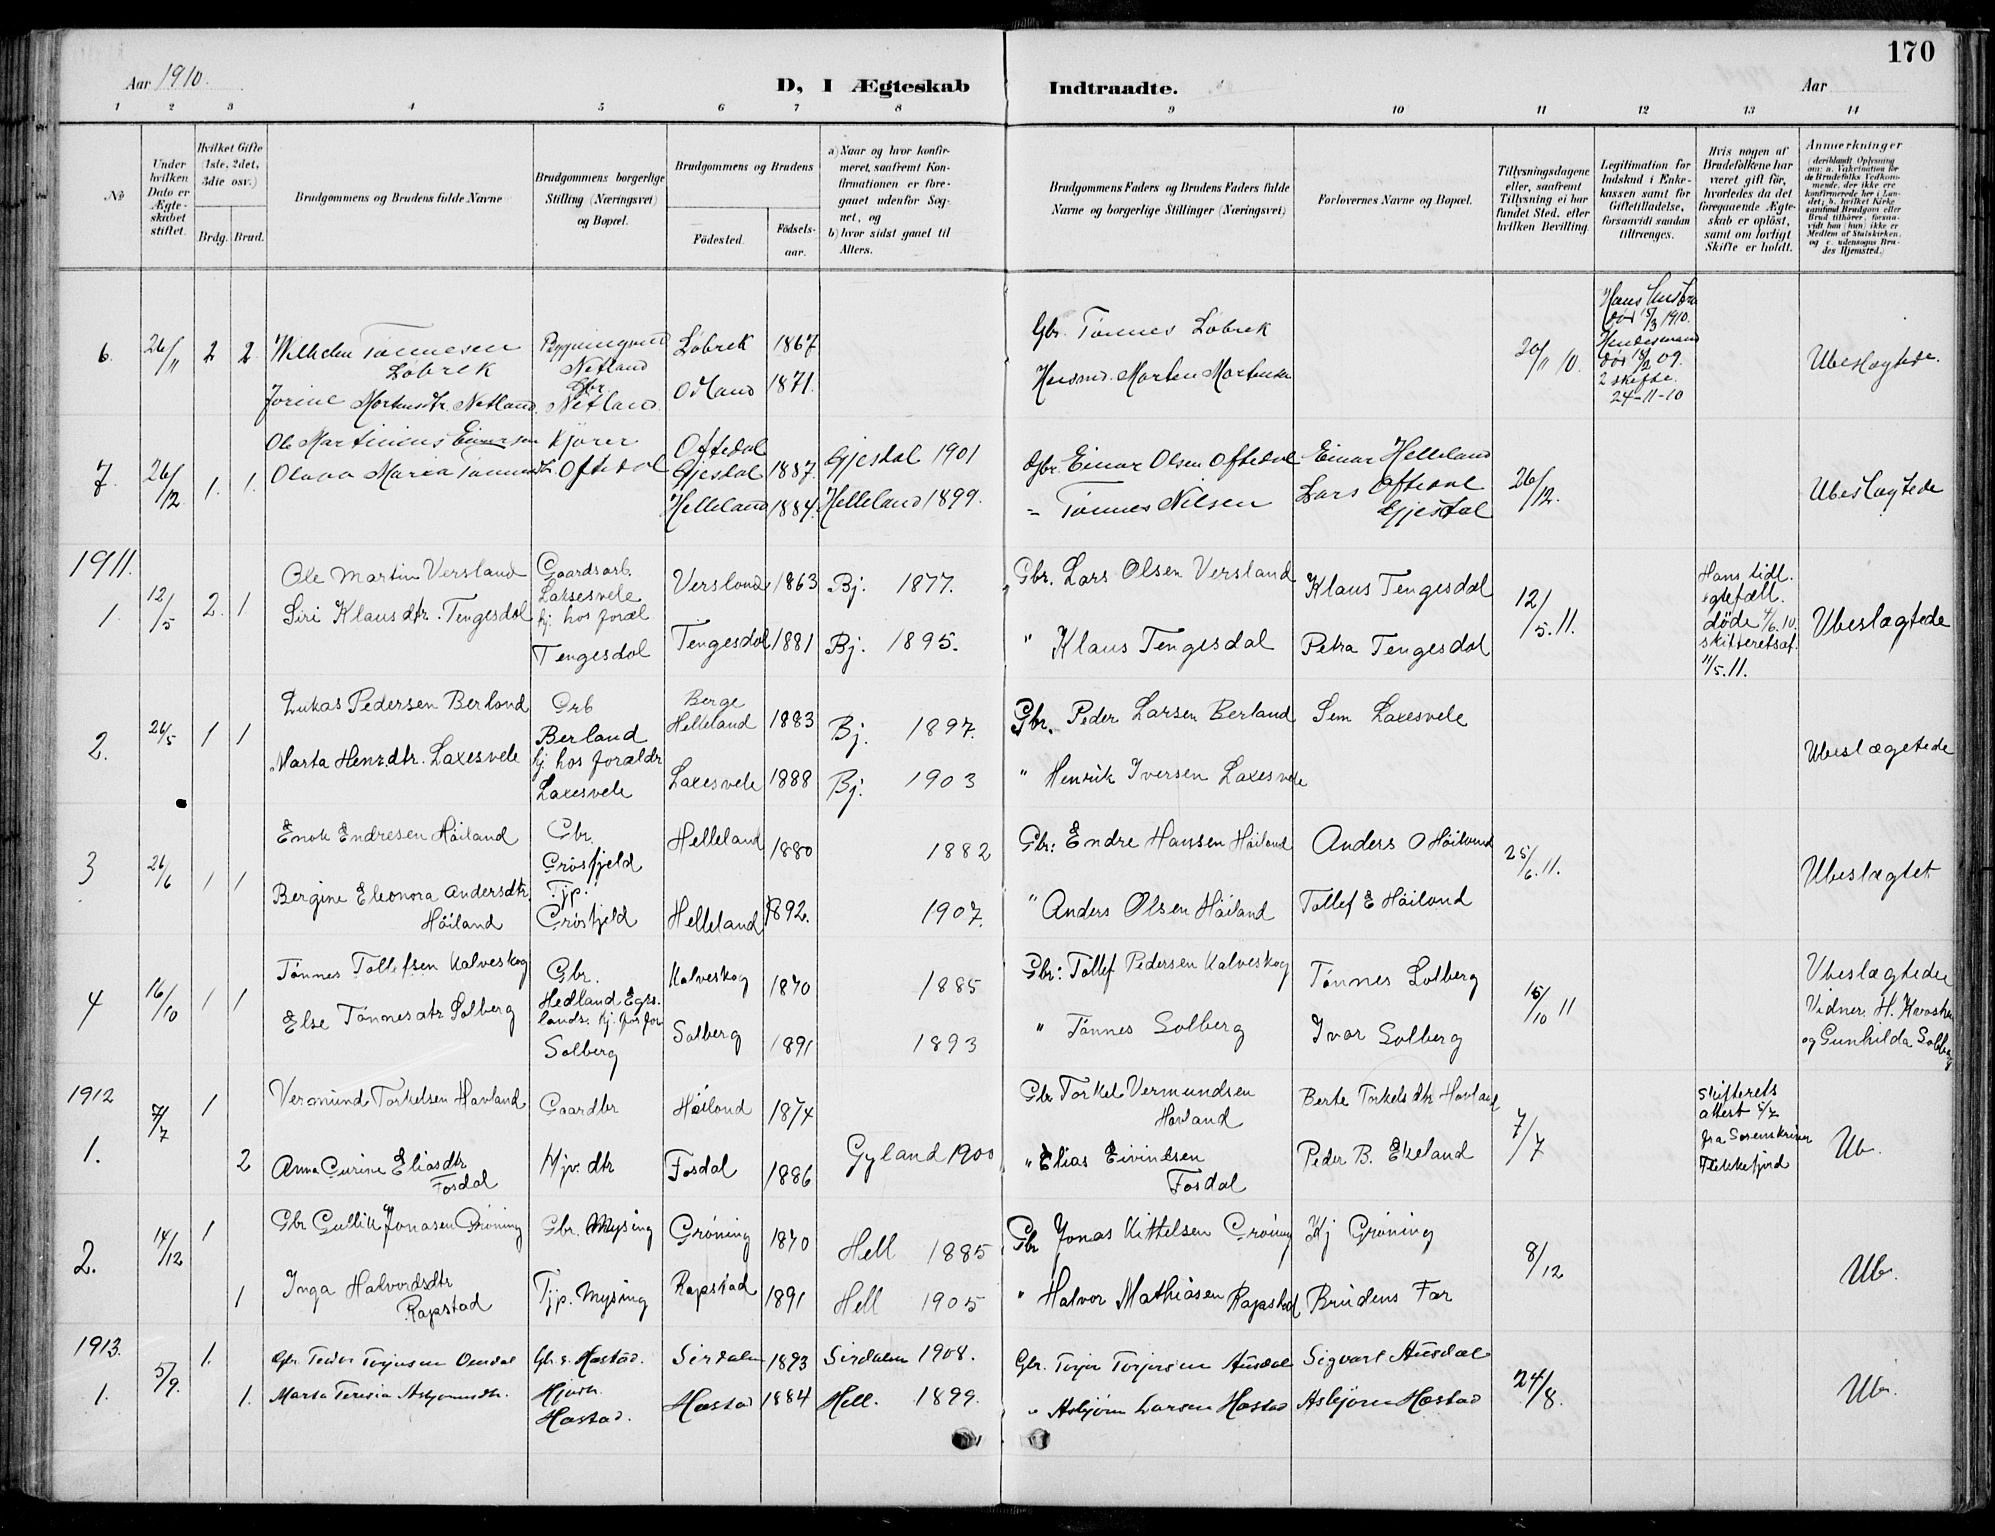 170
Aar 1910.
D, I Ægteskab Indtraadte.
Aar
1 2 3 4 5 6 7 8 9 10 11 12 13 14
No
Under hvilken Dato er Ægteskabet stiftet.
Hvilket Gifte (1ste, 2det, 3die osv.)
Brdg. Brud.
Brudgommens og Brudens fulde Navne
Brudgommens borgerlige Stilling (Næringsvei) og Bopæl.
Brudgommens og Brudens
Fødested.
Fødselsaar.
a) Naar og hvor konfirmeret, saafremt Konfirmationen er foregaaet udenfor Sognet, og
b) hvor sidst gaaet til Alters.
Brudgommens Faders og Brudens Faders fulde Navne og borgerlige Stillinger (Næringsvei)
Forlovernes Navne og Bopæl.
Tillysningsdagene eller, saafremt Tillysning ei har fundet Sted, efter hvilken Bevilling.
Legitimation for Indskud i Enkekassen samt for Giftetilladelse, forsaavidt saadan tiltrænges.
Hvis nogen af Brudefolkene har været gift før, hvorledes da det foregaaende Ægteskab er opløst, samt om lovligt Skifte er holdt.
Anmærkninger
(deriblandt Oplysning om: a. Vakcination for de Brudefolks Vedkommende, der ikke ere konfirmerede her i Landet; b. hvilket Kirkesamfund Brudgom eller Brud tilhører, forsaavidt han (hun) ikke er Medlem af Statskirken, og c. udensogns Brudes Hjemsted.)
6. 26/11 2 2. Wilhelm Tønnesen Løbrek
Netland
Løbrek 1867
Gbr. Tønnes Løbrek
20/11 10.
død 15/3 1910.
Hendes mand død 18/2 09.
2 skifte.
24-11-10
Ubeslægtede.
Jorine Mortensdtr. Netland. Netland. Odland 1871.
Husmd. Morten Mortensen
7. 26/12 1. 1. Ole Martinius Einarsen
Kjører
Oftedal
Oftedal Gjesdal 1887. Gjesdal 1901
Gbr. Einar Olsen Oftedal Einar Helleland
26/12.
Ubeslægtede
Olava Maria Tønnesdtr.
Helleland 1884. Helleland 1899.
" Tønnes Nilsen Lars Oftedal Gjesdal
1911.
1. 12/5 2. 1 Ole Martin Versland
Gaardsarb. Laxesvele
Versland 1863 Bj. 1877.
Gbr. Lars Olsen Versland Klaus Tengesdal
12/5. 11.
Hans tidl. egtefæll. døde 4/6.10. skifteretsat. 11/5. 11.
Ubeslægtede
Siri Klausdtr. Tengesdal
hj. hos foræl Tengesdal
Tengesdal 1881 Bj. 1895.
" Klaus Tengesdal Petra Tengesdal
2. 26/5 1 1 Lukas Pedersen Berland
Berland
Berge Helleland 1883 Bj. 1897.
Gbr. Peder Larsen Berland Sem Laxesvele
Ubeslægtede
Marta Henr.dtr. Laxesvele
hj. hos forældr Laxesvele
Laxesvele 1888 Bj. 1903
" Henrik Iversen Laxesvele
3 26/6 1 1 Enok Endresen Høiland
Gbr. Grøsfjeld
Helleland 1880 1882
Gbr: Endre Hansen Høiland Anders O Høiland
25/6. 11.
Ubeslægtet
Bergine Eleonora Andersdtr Høiland
Tjp. Grøsfjeld
Helleland 1892. 1907.
" Anders Olsen Høiland Tollef E Høiland
4 16/10 1 1 Tønnes Tollefsen Kalveskog
Gbr. Hedland Egers.lands.
Kalveskog 1870 1885
Gbr: Tollef Pedersen Kalveskog Tønnes Solberg
15/10 11
Ubeslægtede
Vidner. H.
og Gunhilda Solberg
Else Tønnesdtr Solberg
hj. hos for Solberg
Solberg 1891 1893
" Tønnes Solberg Ivar Solberg
1912
1. 7/7 1 Vermund Torkelsen Hovland
Gaardbr Høiland 1874
Gbr Torkel Vermundsen Hovland Berte Torkelsdtr Hovland
7/7
Skifterets attest 5/7 fra Sorenskriver Flekkefjord
Ub.
2 Anna Gurine Eliasdtr Fosdal
Hjv. dtr Fosdal 1886 Gyland 1900
" Elias Eivindsen Fosdal Peder B. Ekeland
2. 14/12 1 Gbr Gullik Jonasen Grøning
Gbr. Mysing Grøning 1870 Hell 1885
Gbr Jonas Kittelsen Grøning Kj Grøning
8/12
Ub.
1 Inga Halvordsdtr Rapstad
Tjp. Mysing Rapstad 1891 Hell 1905
" Halvor Mathiasen Rapstad Brudens Far
1913.
1. 5/9. 1. Gbr Tedor Torjusen Ousdal
Hæstad. Sirdalen 1893 Sirdalen 1908.
Gbr. Torjer Torjersen Ausdal Sigvart Ausdal
24/8.
Ub.
1. Marta Teresia Asbjørnsdtr.
Hæstad. Hæstad 1884 Hell. 1899.
" Asbjørn Larsen Hæstad Asbjørn Hæstad